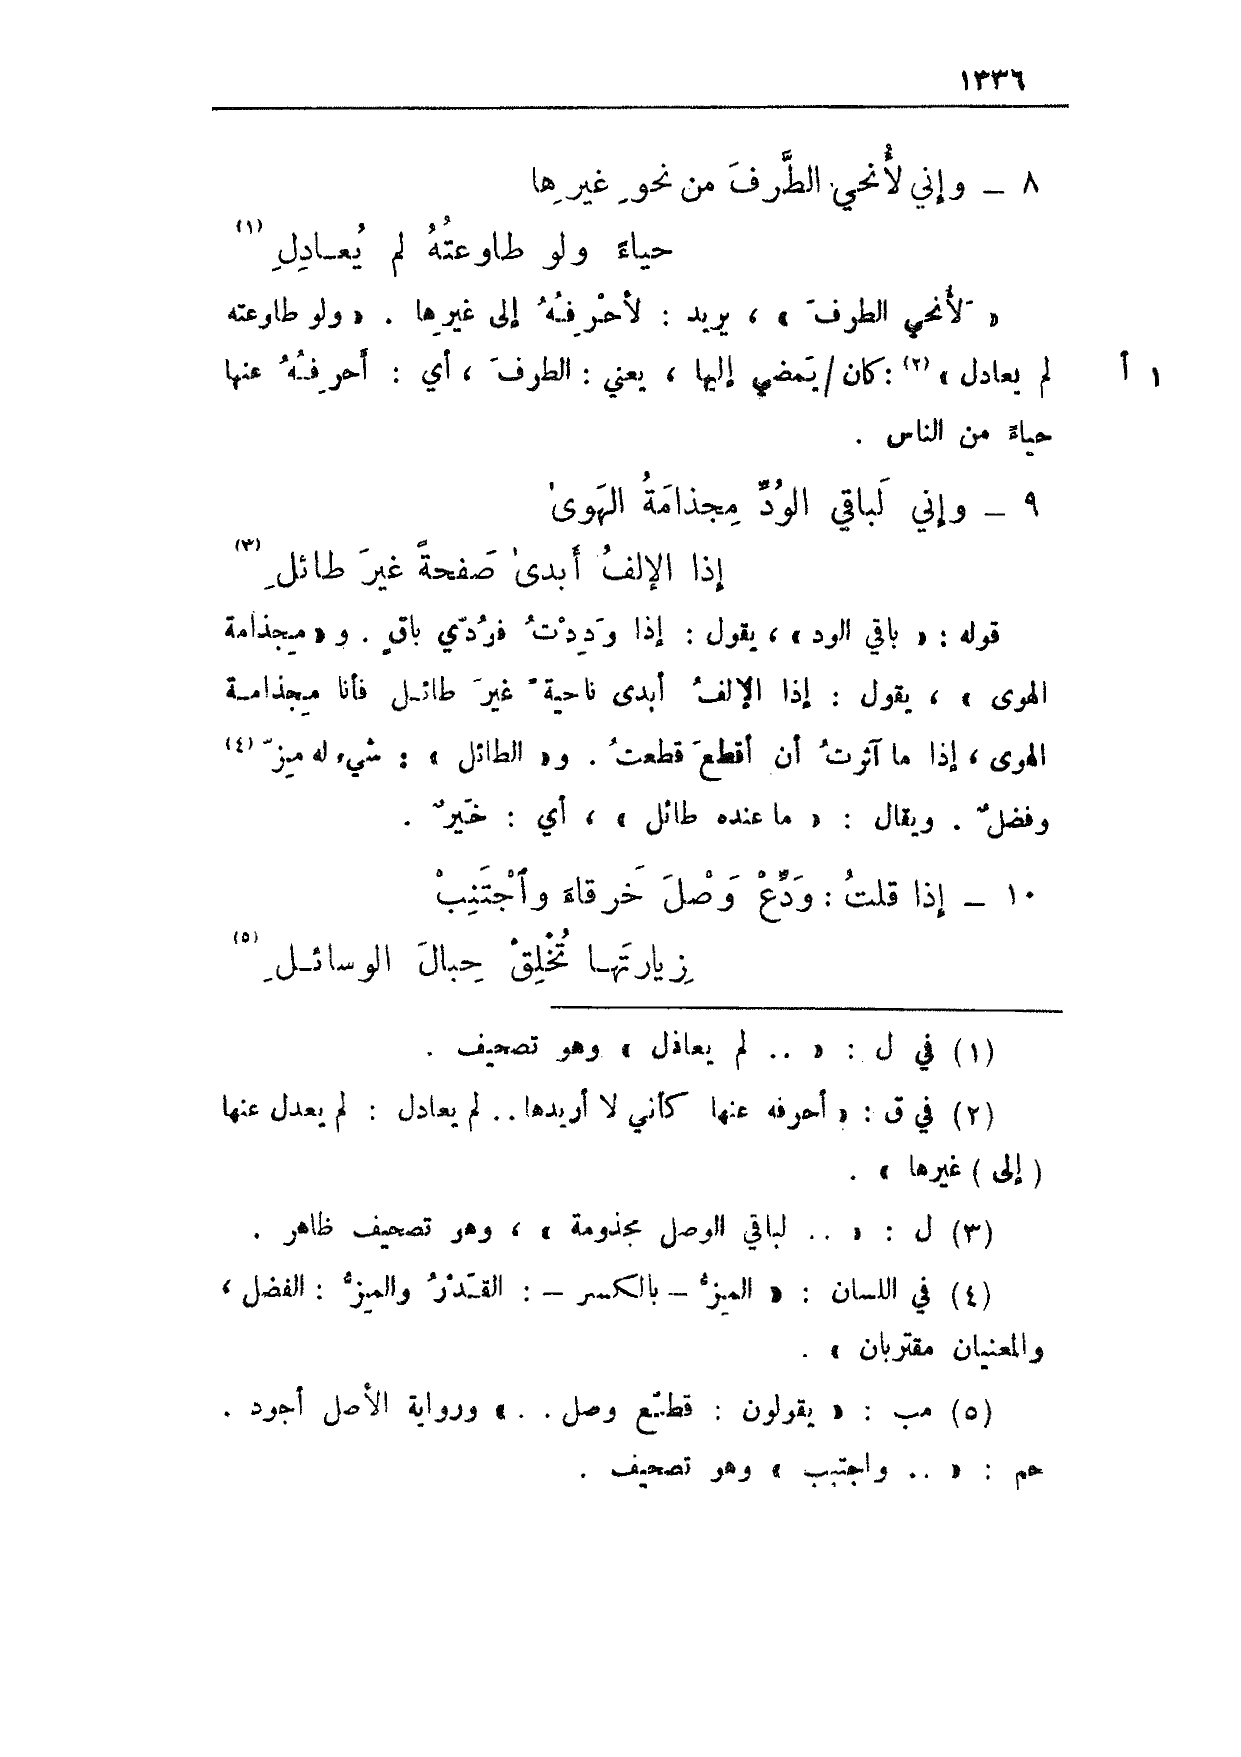 ١٣٣٦
٨ ــ وإني لأُنحي الطَّرفَ من نحوِ غيرِها
حياءً ولو طاوعتُهُ لم يُعـادِلِ (١)
« لَأُنحي الطرفَ » ، يريد : لأحْرِفُهُ إلى غيرِها . « ولو طاوعته
لم يعادل » (٢) : كان / يَمضي إليها ، يعني : الطرفَ ، أي : أَحرِفُهُ عنها
١ أ
حياءً من الناس .
٩ ــ وإني لَباقي الوُدِّ مِجذامَةُ الهَوىٰ
إذا الإلفُ أَبدىٰ صَفحةً غيرَ طائلِ (٣)
قوله : « باقي الود » ، يقول : إذا وَدِدْتُ فوُدّي باقٍ . و « مِجذامة
الهوى » ، يقول : إذا الإلفُ أبدى ناحيةً غيرَ طائـل فأنا مِجذامـة
الهوى ، إذا ما آثرتُ أن أقطعَ قطعتُ . و « الطائل » : شيء له مِزّ (٤)
وفضلٌ . ويقال : « ما عنده طائل » ، أي : خَيرٌ .
١٠ ــ إذا قلتُ : وَدِّعْ وَصْلَ خَرقاءَ وٱجْتَنِبْ
زِيارتَهـا تُخْلِقْ حِبالَ الوسائـلِ (٥)
(١) في ل : « .. لم يعاذل » وهو تصحيف .
(٢) في ق : « أحرفه عنها كأني لا أريدها .. لم يعادل : لم يعدل عنها
( إلى ) غيرها » .
(٣) ل : « .. لباقي الوصل مجذومة » ، وهو تصحيف ظاهر .
(٤) في اللسان : « المِزُّ – بالكسر – : القَدْرُ والمِزُّ : الفضل ،
والمعنيان مقتربان » .
(٥) مب : « يقولون : قطّع وصل . . » ورواية الأصل أجود .
حم : « .. واجتبب » وهو تصحيف .